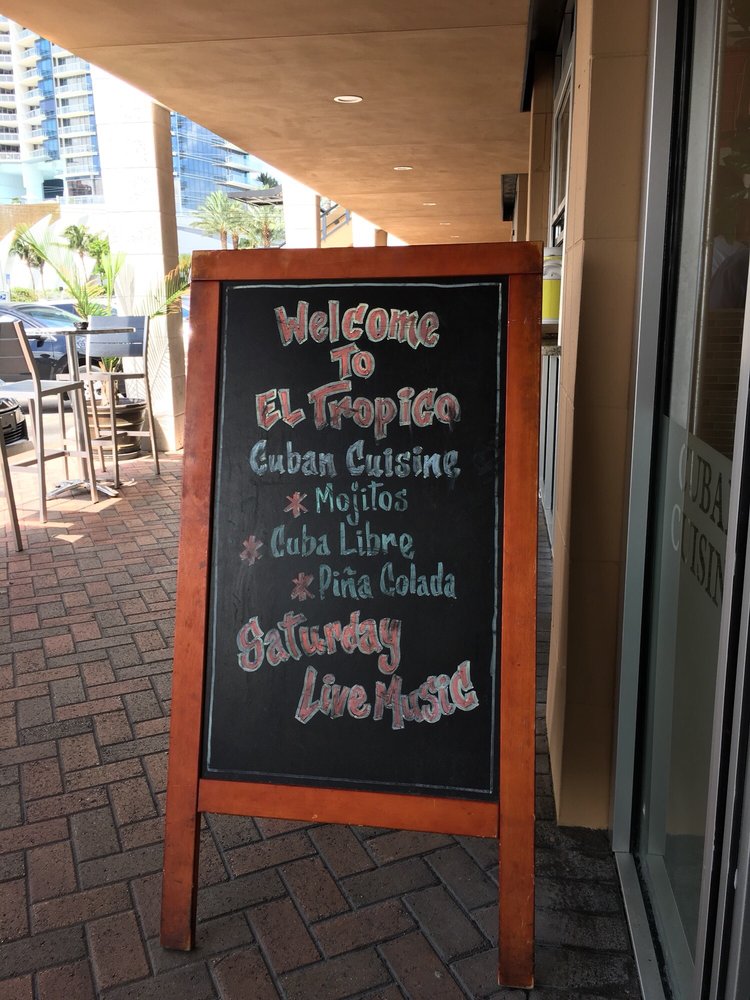 Welcome
To
El Tropico
Cuban Cuisine
* Mojitos
* Cuba Libre
* Piña Colada
Saturday
Live Music
CUBAN
CUISIN